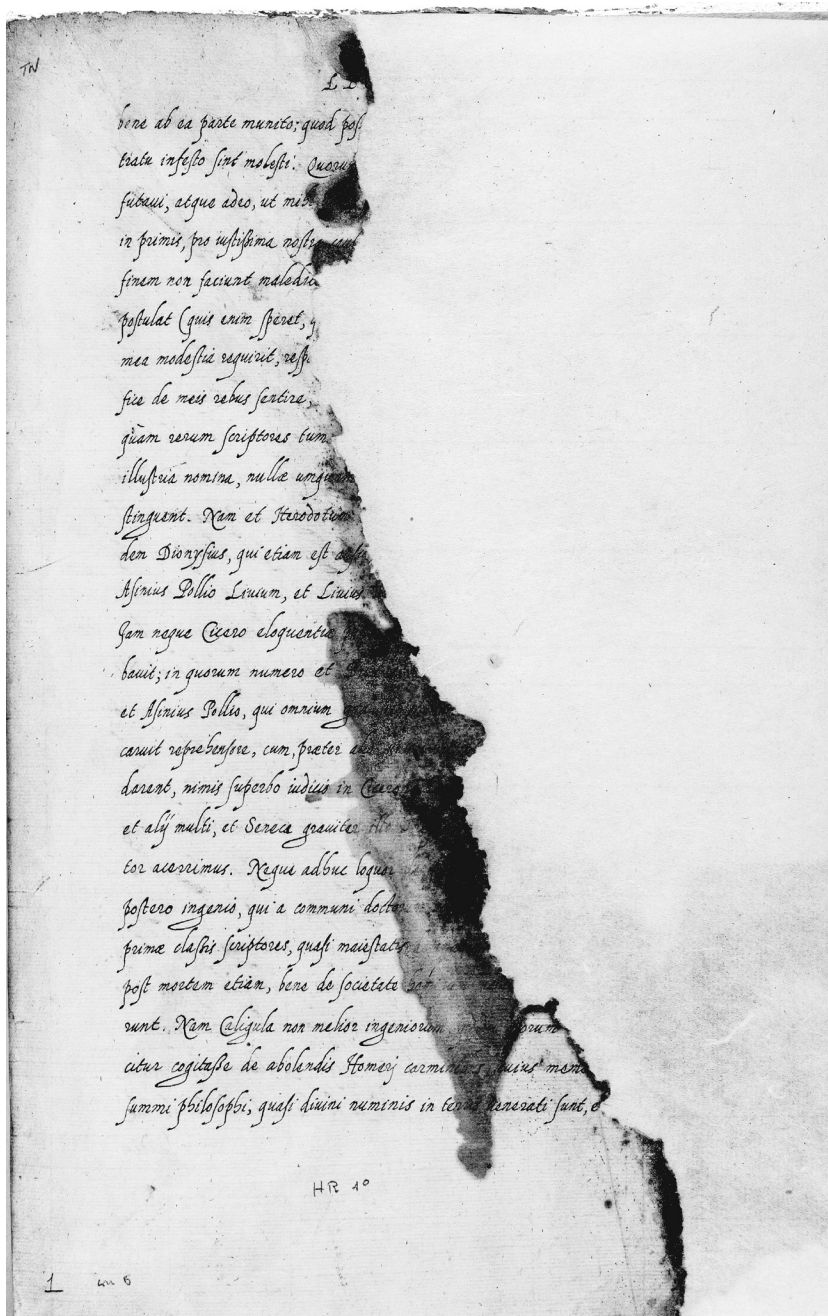 TN
L D
bene ab ea parte munito; quod pos
tratu infesto sint molesti. Quoru
futaui, atque adeo, ut mih
in primis, pro iustissima nostra cau
finem non faciunt maledic
postulat (quis enim speret, q
mea modestia requirit, resp
fice de meis rebus sentire,
quam rerum scriptores tum
illustria nomina, nullæ umquam
stinguent. Nam et Herodotum
dem Dionysius, qui etiam est
Asinius Pollio Liuium, et Liuius
Jam neque Cicero eloquentiæ
bauit; in quorum numero et
et Asinius Pollio, qui omnium
caruit reprehensore, cum, præter
darent, nimis superbo iudicio in Cicero
et alij multi, et Seneca grauiter
tor acerrimus. Neque adhuc loquor
postero ingenio, qui a communi docto
primæ classis scriptores, quasi maiestatis
post mortem etiam, bene de societate
runt. Nam Caligula non melior ingeniorum,
citur cogitasse de abolendis Homerj carminibus, cuius mem
summi philosophi, quasi diuini numinis in terris uenerati sunt, e
HR 1º
1